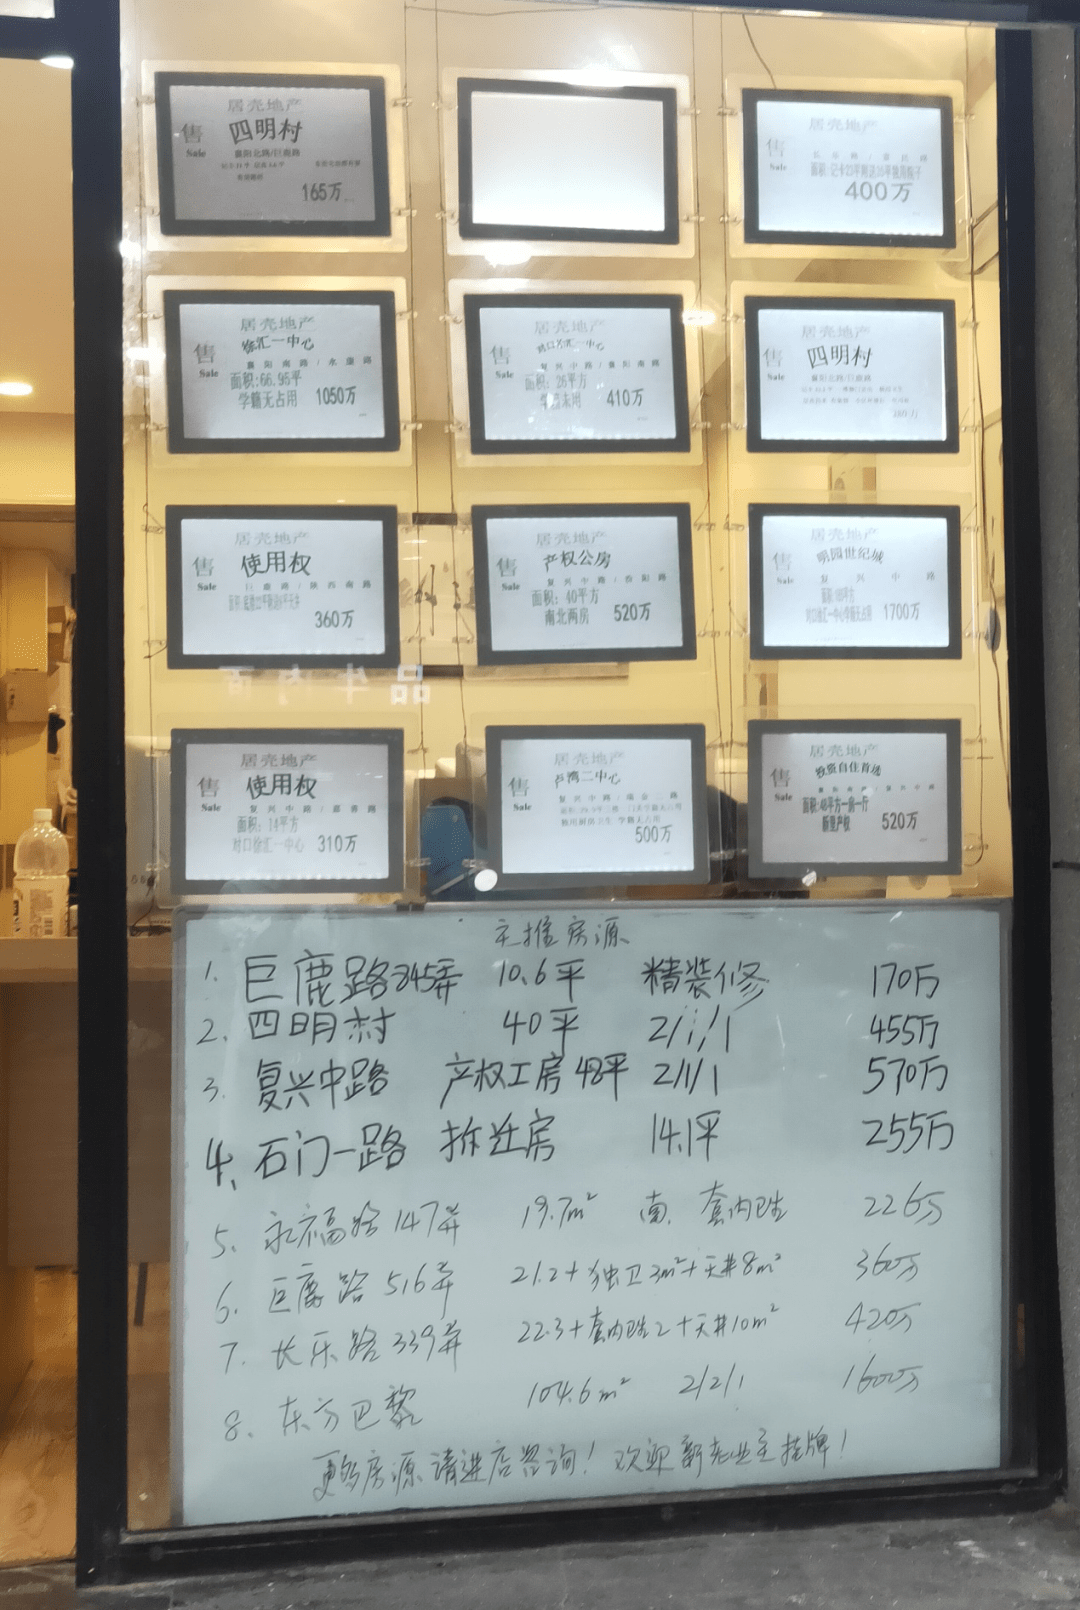 居壳地产
售
Sale
四明村
襄阳北路/巨鹿路
165万
居壳地产
售
Sale
长乐路/富民路
400万
居壳地产
售
Sale
徐汇一中心
襄阳南路/永康路
面积:66.95平
学籍无占用 1050万
居壳地产
售
Sale
对口徐汇一中心
复兴中路/襄阳南路
面积:26平方
学籍未用 410万
居壳地产
售
Sale
四明村
襄阳北路/巨鹿路
居壳地产
售
Sale
使用权
巨鹿路/陕西南路
360万
居壳地产
售
Sale
产权公房
复兴中路/汾阳路
面积:40平方
南北两房 520万
居壳地产
售
Sale
明园世纪城
复兴中路
对口徐汇一中心学籍无占用 1700万
居壳地产
售
Sale
使用权
复兴中路/嘉善路
面积:14平方
对口徐汇一中心 310万
居壳地产
售
Sale
卢湾二中心
复兴中路/瑞金二路
独用厨房卫生 学籍无占用
500万
居壳地产
售
Sale
投资自住首选
襄阳南路/复兴中路
面积:48平方一房一厅
新里产权 520万
品牛肉面
主推房源
1. 巨鹿路845弄 10.6平 精装修 170万
2. 四明村 40平 2/1/1 455万
3. 复兴中路 产权工房 48平 2/1/1 570万
4. 石门一路 拆迁房 14.1平 255万
5. 永福路147弄 19.7m² 南 套内卫生 226万
6. 巨鹿路516弄 21.2+独卫3m²+天井8m² 360万
7. 长乐路339弄 22.3+套内卫生2+天井10m² 420万
8. 东方巴黎 104.6m² 2/2/1 1600万
更多房源请进店咨询! 欢迎新老业主挂牌!